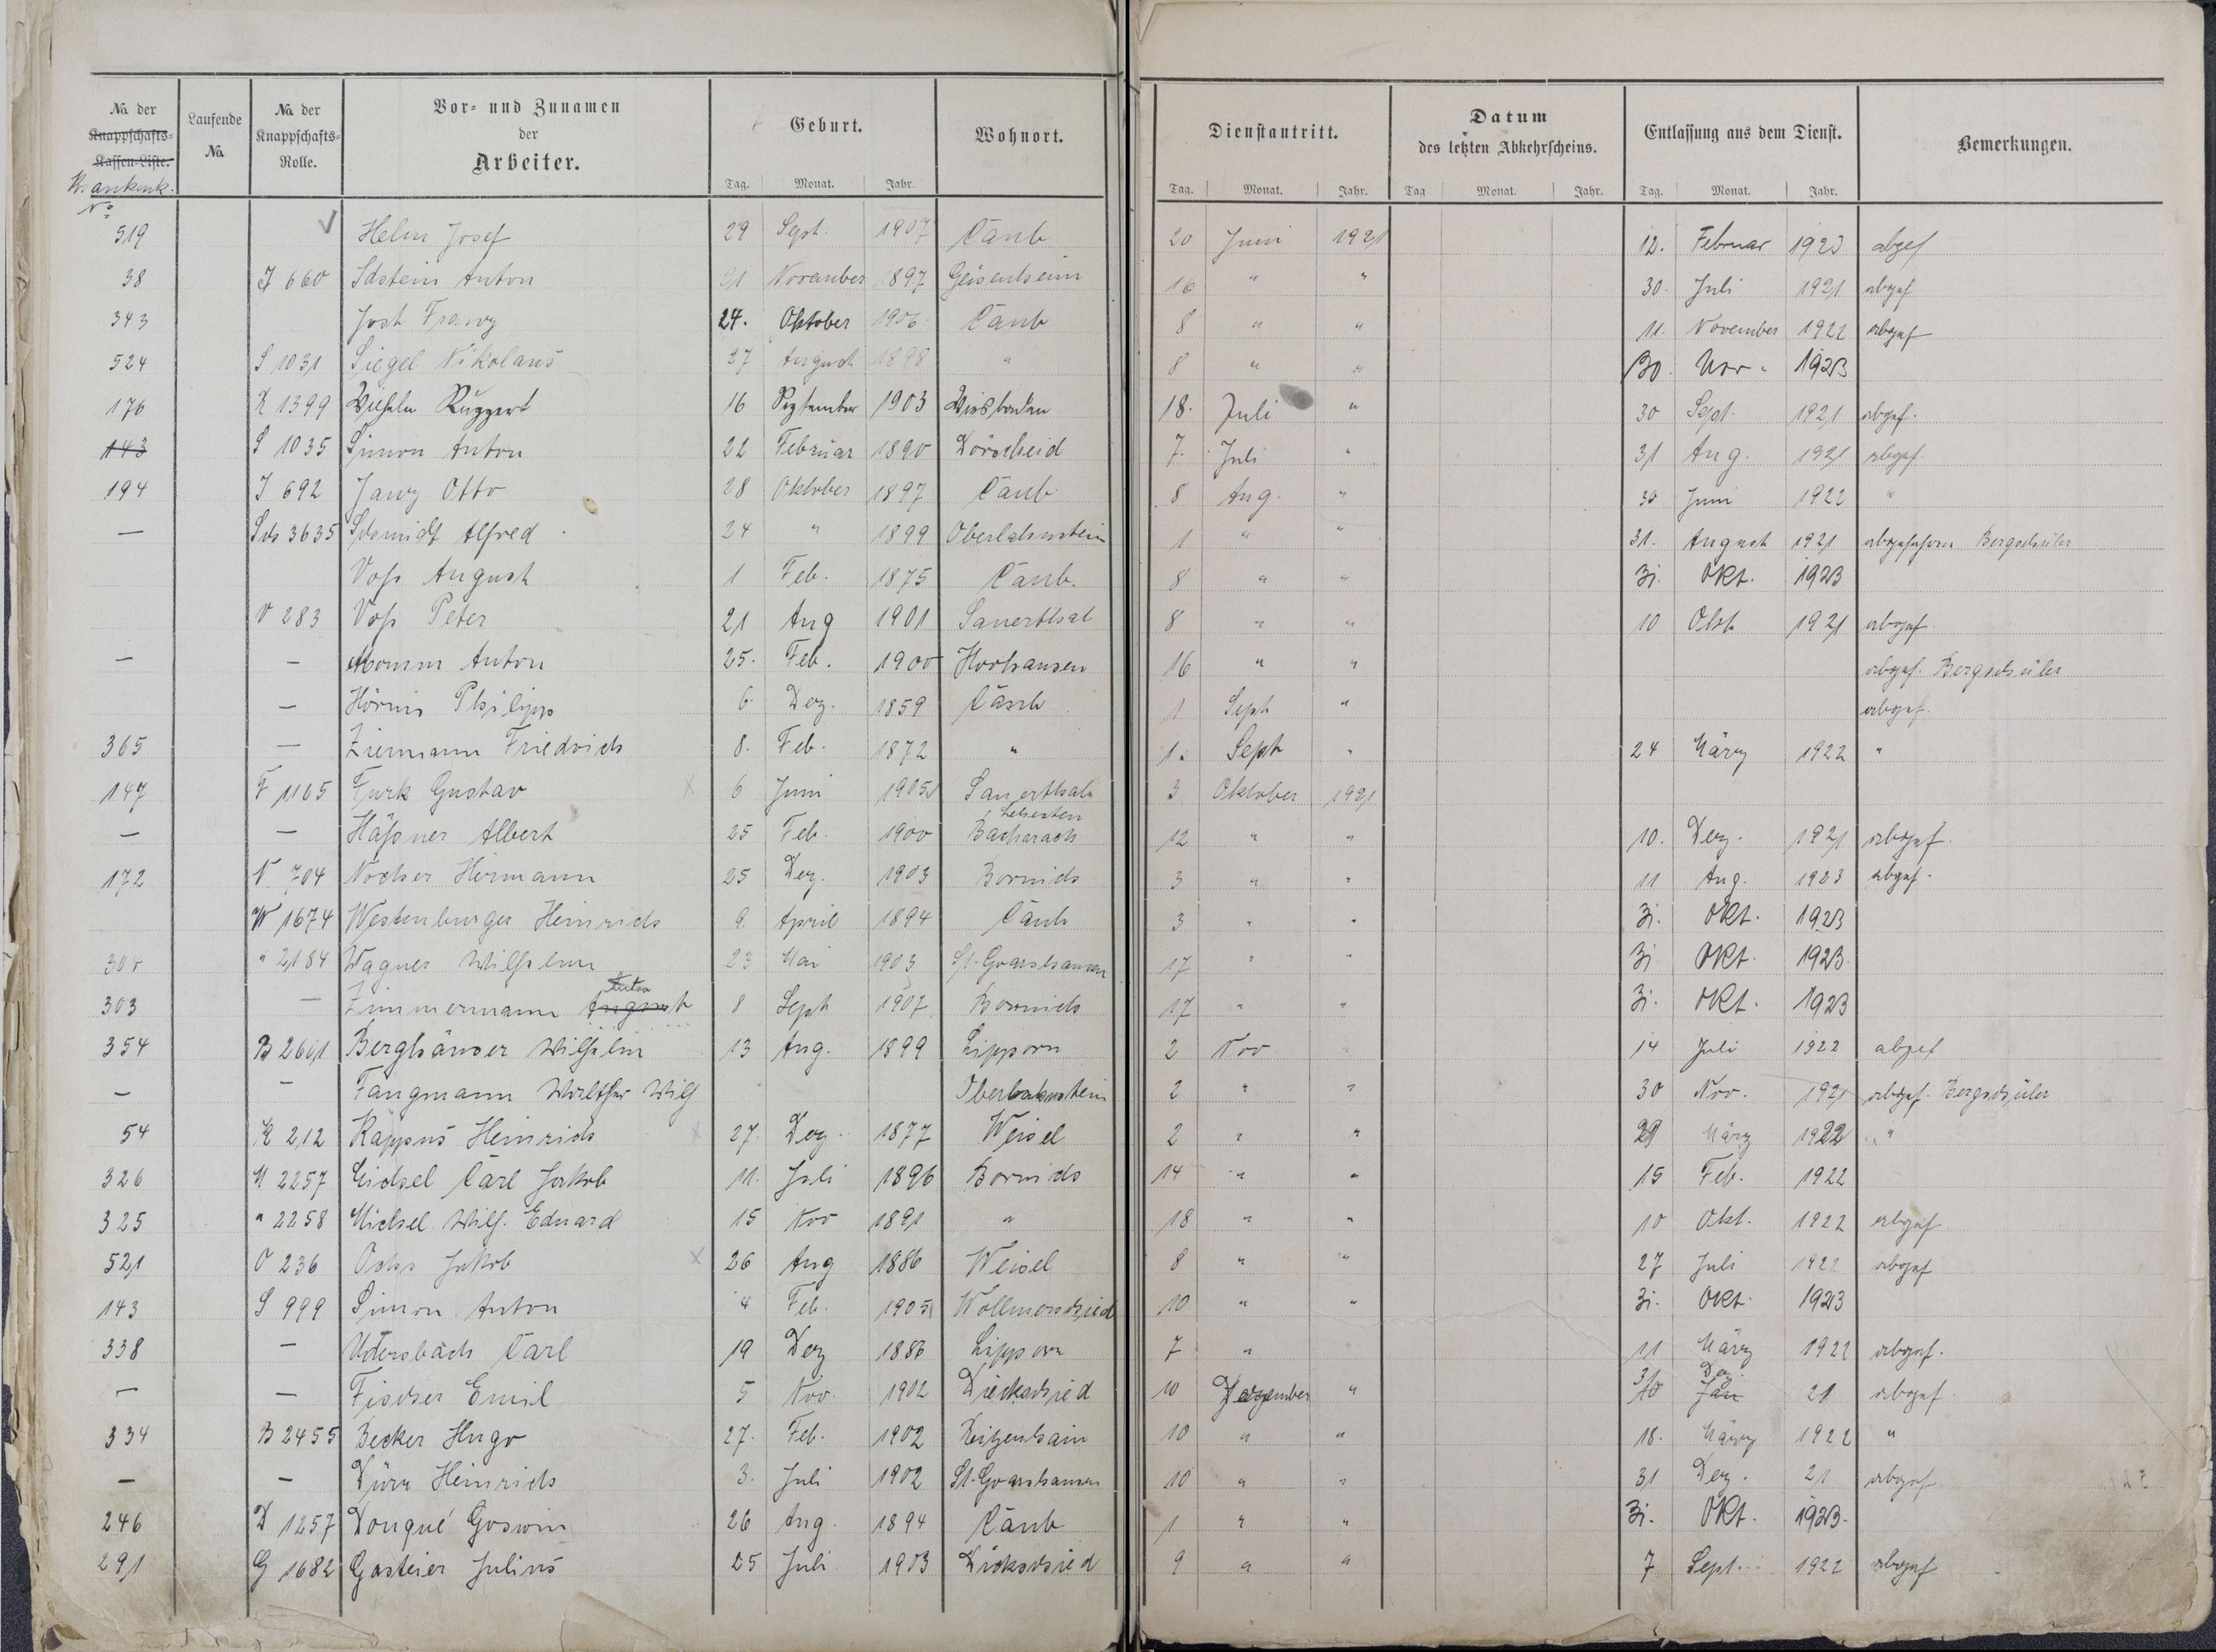 No. der Knappschafts-Kassen-Liste. Krankenk. No. Laufende No. No. der Knappschafts-Rolle. Vor- und Zunamen der Arbeiter. Geburt. Wohnort. Dienstantritt. Datum des letzten Abkehrscheins. Entlassung aus dem Dienst. Bemerkungen.
Tag. Monat. Jahr. Tag. Monat. Jahr. Tag Monat. Jahr. Tag. Monat. Jahr.
519 Helm Josef 29 Sept. 1907 Caub 20 Juni 1921 12. Februar 1923 abgef
38 I 660 Idstein Anton 21 November 1897 Geisenheim 16 " " 30. Juli 1921 abgef
343 Jost Franz 24. Oktober 1906 Caub 8 " " 11. November 1922 abgef
524 S 1031 Siegel Nikolaus 27 August 1898 " 8 " " 30. Nov. 1923
176 R 1399 Wilhelm Ruggert 16 September 1903 Wiesbaden 18. Juli " 30 Sept. 1921 abgef.
143 S 1035 Simon Anton 22 Februar 1890 Dörscheid 7. Juli " 31 Aug. 1921 abgef.
194 J 692 Janz Otto 28 Oktober 1897 Caub 8 Aug. " 30 Juni 1922 "
— Sch 3635 Schmidt Alfred 24 " 1899 Oberlahnstein 1 " " 31. August 1921 abgefahren Bergschüler
Voß August 1 Feb. 1875 Caub. 8 " " 31. Okt. 1923
V 283 Voß Peter 21 Aug 1901 Sauerthal 8 " " 10 Okt 1921 abgef.
— — Momm Anton 25. Feb. 1900 Horhausen 16 " " abgef. Bergschüler
— Philipp 6. Dez. 1859 Caub 1 Sept " abgef.
365 — Ziermann Friedrich 8. Feb. 1872 " 1. Sept " 24 März 1922 "
147 F 1165 Furk Gustav 6 Juni 1905 Sauerthal 3 Oktober 1921
— — Häßner Albert 25 Feb. 1900 Lehesten Bacharach 12 " " 10. Dez. 1921 abgef.
172 N 704 Nocher Hermann 25 Dez. 1903 Bornich 3 " " 11 Aug. 1923 abgef.
W 1674 Westenburger Heinrich 9. April 1894 Caub 3 " " 31. Okt. 1923
304 " 2184 Wagner Wilhelm 23 Mai 1903 St. Goarshausen 17 " " 31. Okt. 1923.
303 — Zimmermann August Anton 8 Sept 1907 Bornich 17 " " 31. Okt. 1923
354 B 2601 Berghäuser Wilhelm 13 Aug. 1899 Lipporn 2 Nov " 14 Juli 1922 abgef
— — Fangmann Walther Wilh Oberlahnstein 2 " " 30 Nov. 1921 abgef. Bergschüler
54 K 212 Kappus Heinrich 27. Dez. 1877 Weisel 2 " " 29 März 1922 "
326 M 2257 Michel Carl Jakob 11. Juli 1896 Bornich 14 " " 15 Feb. 1922
325 " 2258 Michel Wilh. Eduard 15 Nov 1891 " 18 " " 10 Okt. 1922 abgef
521 O 236 Ochs Jakob 26 Aug 1886 Weisel 8 " " 27 Juli 1922 abgef
143 S 999 Simon Anton 4 Feb. 1905 Wollmerschied 10 " " 31. Okt. 1923
338 — Carl 19 Dez 1886 Lipporn 7 " " 11 März 1922 abgef.
— — Fischer Emil 5 Nov. 1902 Dickschied 10 Dezember " 31 10 Dez. Jan 21 abgef
334 B 2455 Becker Hugo 27. Feb. 1902 Reitzenhain 10 " " 18. März 1922 "
— — Dürr Heinrich 3. Juli 1902 St. Goarshausen 10 " " 31 Dez. 21 abgef
246 D 1257 Donqué Goswin 26 Aug. 1894 Caub 1 " " 31. Okt. 1923.
291 G 1682 Gasteier Julius 25 Juli 1903 Dickschied 9 " " 7 Sept. 1922 abgef